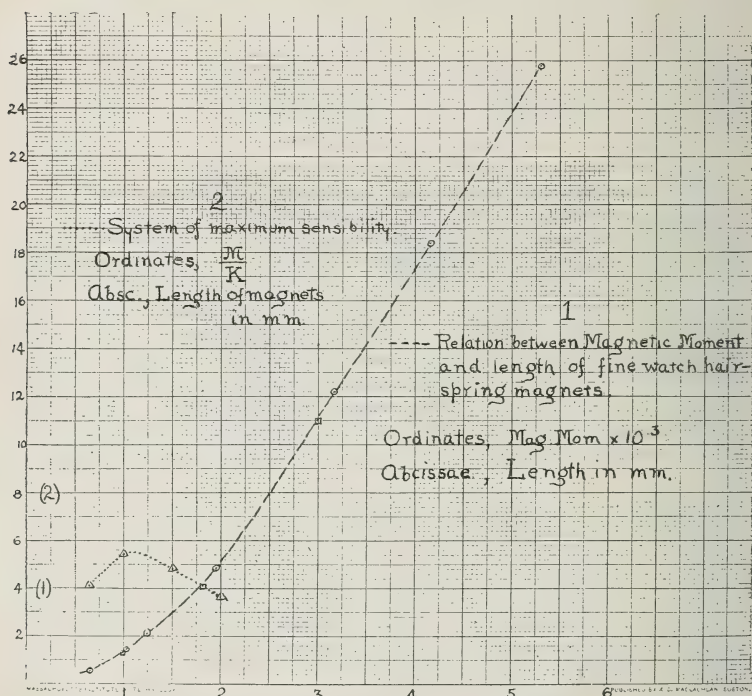 26
24
22
20
18
16
14
12
10
8
6
4
2
(2)
(1)
2
...... System of maximum sensibility.
Ordinates, M/K
Absc., Length of magnets
in mm.
1
---- Relation between Magnetic Moment
and length of fine watch hair-
spring magnets.
Ordinates, Mag. Mom × 10³
Abcissae, Length in mm.
1 2 3 4 5 6
PUBLISHED BY